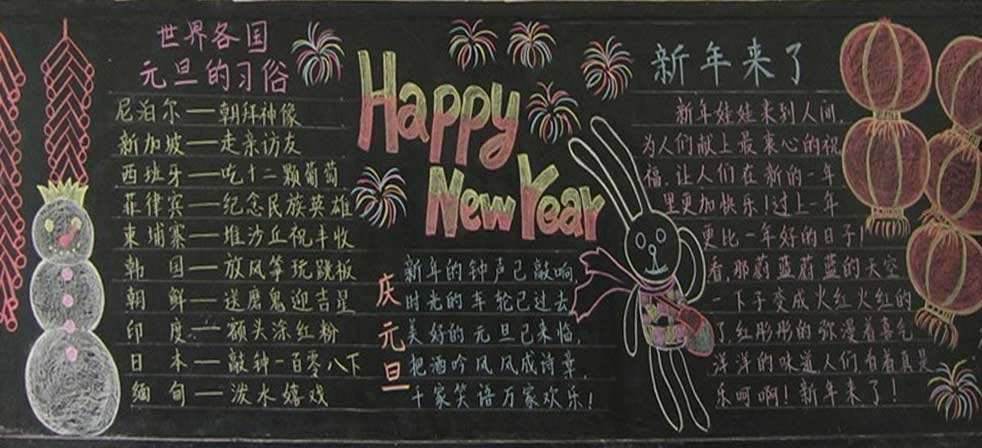 世界各国
元旦的习俗
尼泊尔—朝拜神像
新加坡—走亲访友
西班牙—吃十二颗葡萄
菲律宾—纪念民族英雄
柬埔寨—堆沙丘祝丰收
韩国—放风筝玩跳板
朝鲜—送魔鬼迎吉星
印度—额头涂红粉
日本—敲钟一百零八下
缅甸—泼水嬉戏
Happy
New Year
庆元旦
新年的钟声已敲响
时光的车轮已过去
美好的元旦已来临,
把酒吟风风成诗章,
千家笑语万家欢乐!
新年来了
新年娃娃来到人间,
为人们献上最衷心的祝
福,让人们在新的一年
里更加快乐!过上一年
更比一年好的日子!
看,那蔚蓝蔚蓝的天空
一下子变成火红火红的
了,红彤彤的弥漫着喜气
洋洋的味道人们,看着真是
乐呵啊!新年来了!